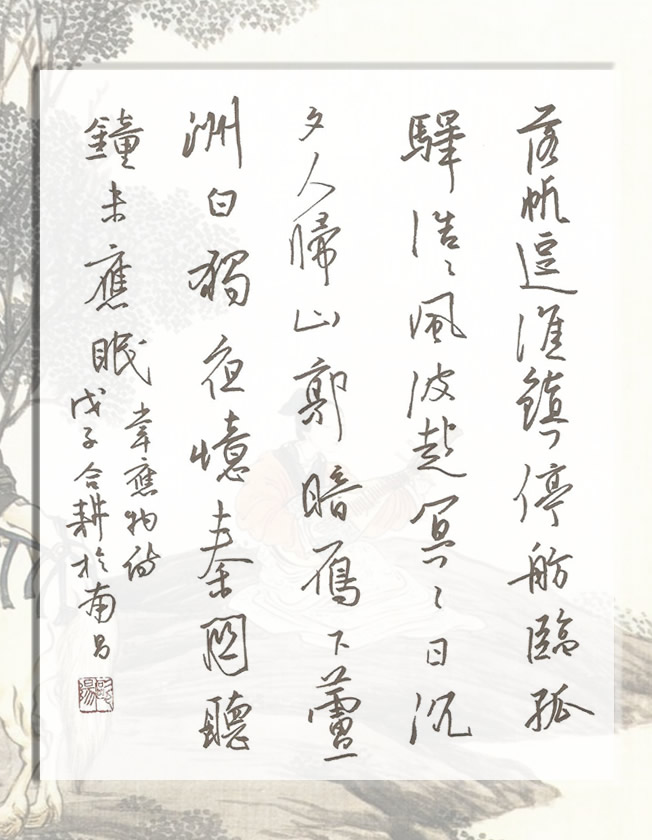 落帆逗淮鎮停舫臨孤
驛浩〻風波起冥〻日沉
夕人歸山郭暗鴈下蘆
洲白獨夜憶秦關聽
鐘未應眠
韋應物詩
戊子合耕於南昌